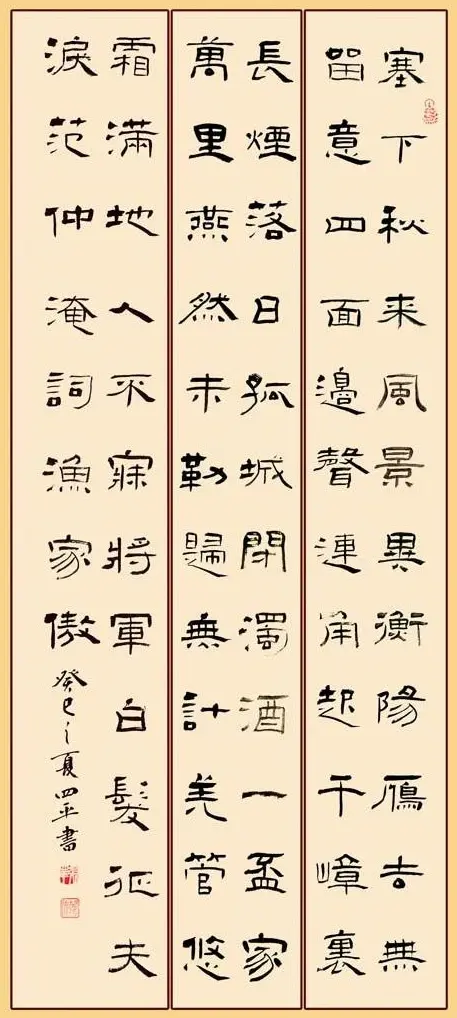 塞下秋来風景異衡陽鴈去無
留意四面邊聲連角起千嶂裏
長煙落日孤城閉濁酒一盃家
萬里燕然未勒歸無計羌管悠
霜滿地人不寐將軍白髮征夫
淚范仲淹詞漁家傲
癸巳之夏四平書